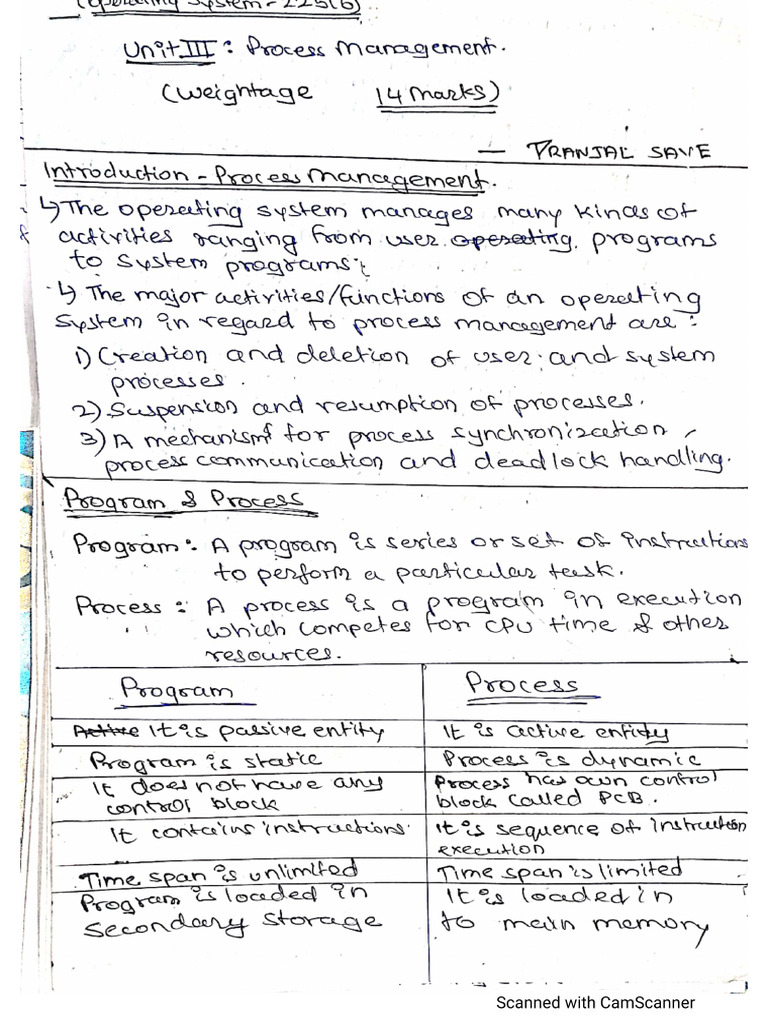 (Operating System - 22516)
Unit III : Process Management.
(Weightage 14 Marks)
— PRANJAL SAVE
Introduction - Process Management.
↳ The operating system manages many kinds of
activities ranging from user operating programs
to system programs.
↳ The major activities/functions of an operating
system in regard to process management are :
1) Creation and deletion of user and system
processes.
2) Suspension and resumption of processes.
3) A mechanism for process synchronization,
process communication and deadlock handling.
Program & Process
Program : A program is series or set of instructions
to perform a particular task.
Process : A process is a program in execution
which competes for CPU time & other
resources.
Program Process
Active It is passive entity It is active entity
Program is static Process is dynamic
It does not have any Process has own control
control block block called PCB.
It contains instructions It is sequence of instruction
execution
Time span is unlimited Time span is limited
Program is loaded in It is loaded in
secondary storage to main memory
Scanned with CamScanner